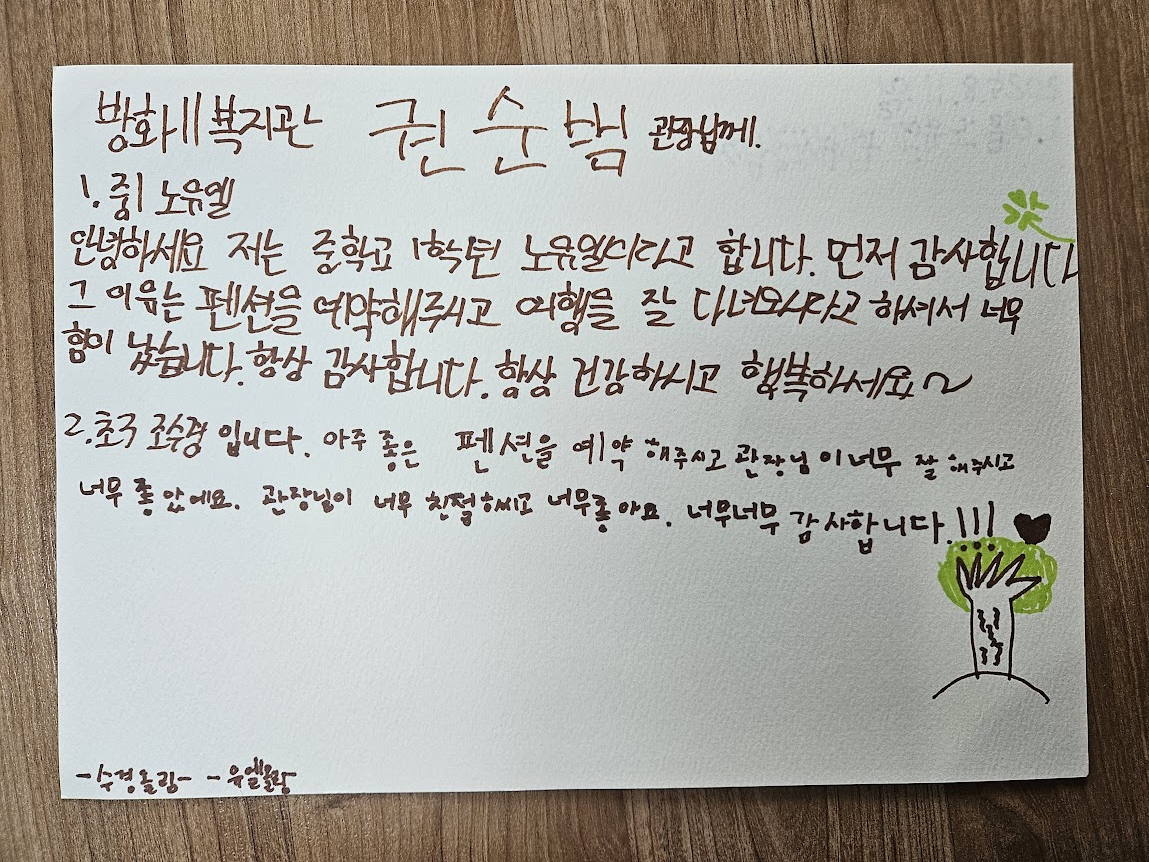 방화11복지관 권순범 관장님께.
1. 중1 노유엘
안녕하세요 저는 중학교 1학년 노유엘이라고 합니다. 먼저 감사합니다
그 이유는 펜션을 예약해주시고 여행을 잘 다녀오시라고 하셔서 너무
힘이 났습니다. 항상 감사합니다. 항상 건강하시고 행복하세요~
2. 초3 조수경 입니다. 아주 좋은 펜션을 예약 해주시고 관장님이 너무 잘 해주시고
너무 좋았에요. 관장님이 너무 친절하시고 너무좋아요. 너무너무 감사합니다.!!!
-수경올림- -유엘올림